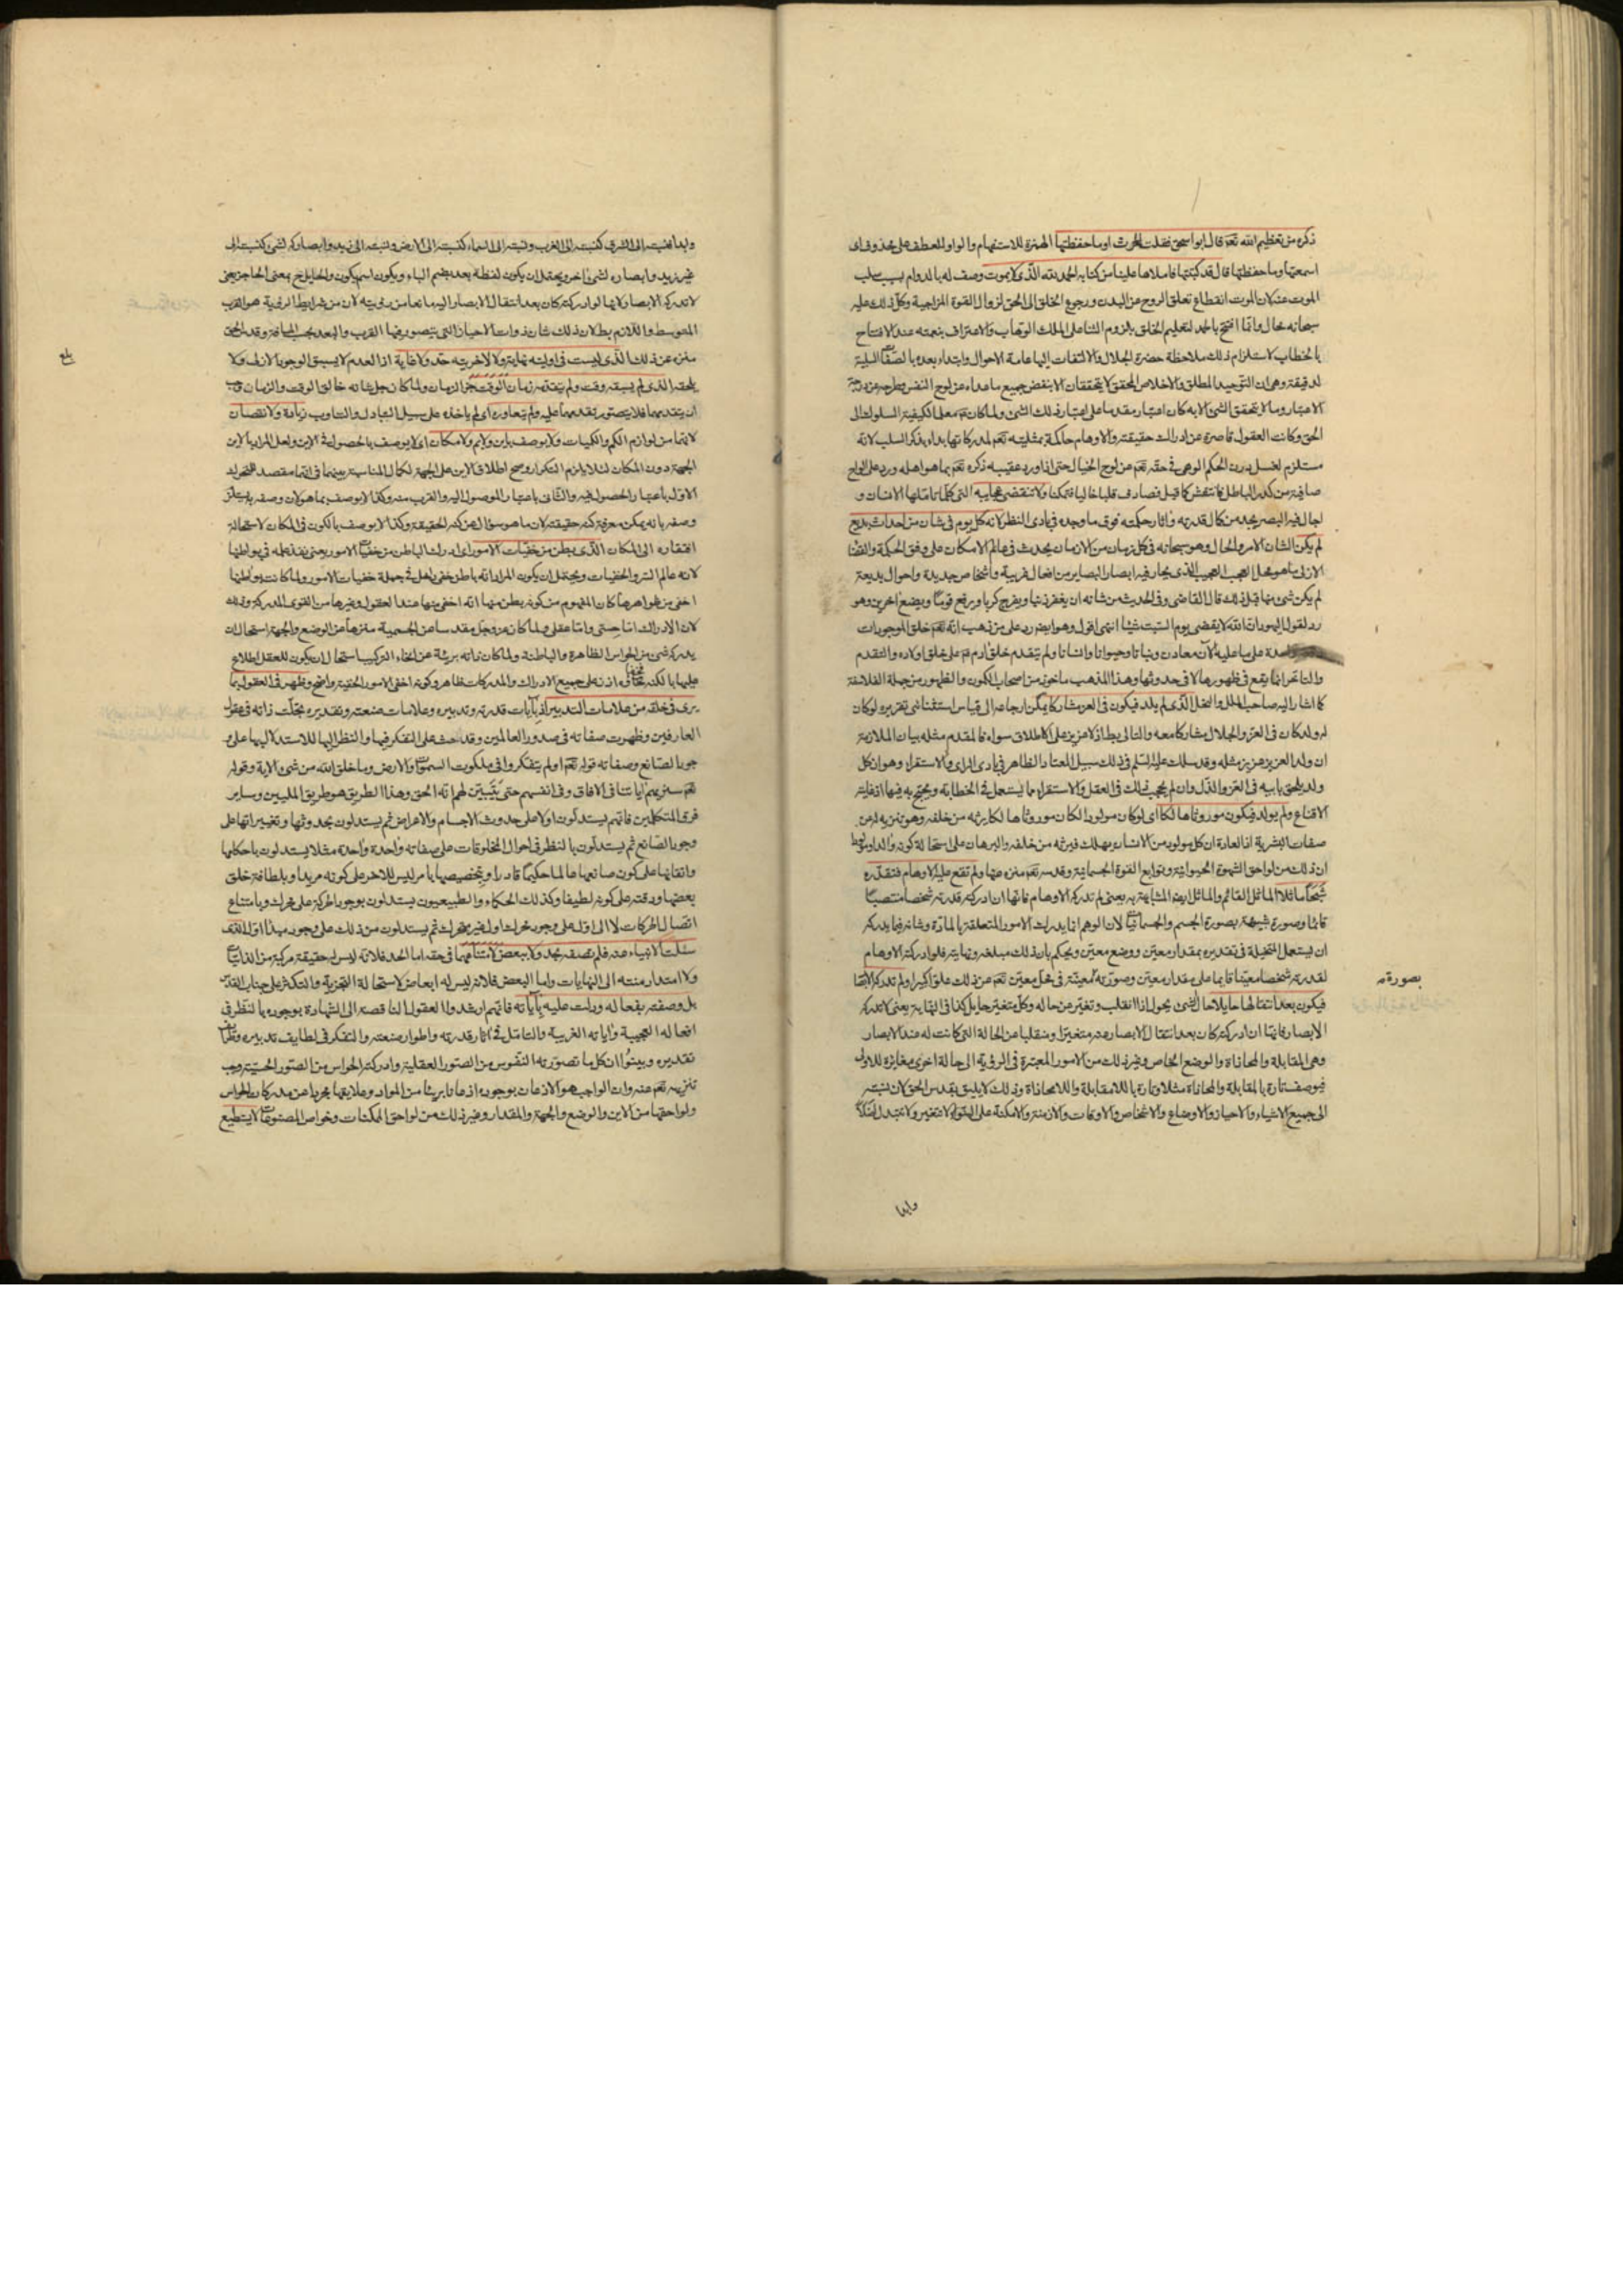 ذكره من تعظيم الله تعم قال ابو اسحق فقلت للحرث اوما حفظتها الهمزة للاستفهام والواو للعطف على محذوف اى
اسمعتها وما حفظتها قال قد كتبتها فاملاها علينا من كتابه الحمد لله الذى لا يموت وصف له بالدوام بسبب سلب
الموت عنه لان الموت انقطاع تعلق الروح عن البدن ورجوع الخلق الى الحق لزوال القوة المزاجية وكل ذلك عليه
سبحانه محال وانما افتتح بالحمد لتعليم الخلق بلزوم الثنا على الملك الوهاب والاعتراف بنعمته عند الافتتاح
بالخطاب لاستلزام ذلك ملاحظة حضرة الجلال والالتفات اليها عامة الاحوال وابتداء بعده بالصفات السلبية
لدقيقة وهى ان التوحيد المطلق والاخلاص المحقق لا يتحققان الا بنفض جميع ما عداه عن لوح النفس وطرحه عن درجة
الاعتبار وما لا يتحقق الشئ الا به كان اعتباره مقدما على اعتبار ذلك الشئ ولما كان تعم معلى الكيفية السلوك الى
الحق وكانت العقول قاصرة عن ادراك حقيقته والاوهام حاكمة بمثليته تعم لمدركاتها بداء بذكر السلب لانه
مستلزم لغسل درن الحكم الوهمى فى حقه تعم عن لوح الخيال حتى اذا اورد عقيبه ذكره تعم بما هو اهله ورد على الواح
صافية من كدر الباطل فانتقش كما قيل فصادف قلبا خاليا فتمكنا ولا تنقضى عجايبه التى كلما تاملها الانسان و
اجال فيها البصر يجد من كمال قدرته واثار حكمته فوق ما وجده فى بادى النظر لانه كل يوم فى شان من احداث بديع
لم يكن الشان الامر والحال وهو سبحانه فى كل زمان من الازمان يحدث فى عالم الامكان على وفق الحكمة والقضا
الازلى ما هو محل العجب العجيب الذى يحار فيه ابصار البصاير من افعال غريبة واشخاص جديدة واحوال بديعة
لم يكن شئ منها قبل ذلك قال القاضى وفى الحديث من شانه ان يغفر ذنبا ويفرج كربا ويرفع قوما ويضع اخرين وهو
رد لقول اليهود ان الله لا يقضى يوم السبت شيئا انتهى اقول وهو ايضا رد على من ذهب انه تعم خلق الموجودات
واحدة على ما عليه الآن معادن ونباتا وحيوانا وانسانا ولم يتقدم خلق آدم عم على خلق اولاده والتقدم
والتاخر انما يقع فى ظهورها لا فى حدوثها وهذا المذهب ماخوذ من اصحاب الكمون والظهور من جملة الفلاسفة
كما اشار اليه صاحب الملل والنحل الذى لم يلد فيكون فى العز مشاركا يمكن ارجاعه الى قياس استثنائى تقريره لو كان
له ولد كان فى العز والجلال مشاركا معه والتالى بط اذ لا عزيز على الاطلاق سواه فالمقدم مثله بيان الملازمة
ان ولد العزيز عزيز مثله وقد سلك عليه السلم فى ذلك سبيل المعتاد الظاهر فى بادى الراى والاستقراء وهو ان كل
ولد يلحق بابيه فى العز والذل وان لم يجب ذلك فى العقل والاستقراء مما يستعمل فى الخطابة ويحتج به فيها اذ غايته
الاقناع ولم يولد فيكون موروثا هالكا اى لو كان مولودا لكان موروثا هالكا يرثه من خلفه وهو تنزيه له عن
صفات البشرية اذ العادة ان كل مولود من الانسان يهلك فيرثه من خلفه والبرهان على استحالة كونه والدا ومولودا
ان ذلك من لواحق الشهوة الحيوانية وتوابع القوة الجسمانية وقدسه تعم منزه عنها ولم تقع عليه الاوهام فتقدره
شبحا ماثلا الماثل القائم والماثل ايضا المشابه به يعنى لم تدركه الاوهام فانها ان ادركته قدرته شخصا منتصبا
قائما وصورة شبيهة بصورة الجسم والجسمانيات لان الوهم انما يدرك الامور المتعلقة بالمادة وشانه فيما يدركه
ان يستعمل المتخيلة فى تقديره بمقدار معين ووضع معين ويحكم بان ذلك مبلغه ونهايته فلو ادركته الاوهام
لقدرته شخصا معينا قايما على مقدار معين وصورته معينة فى محل معين تعم عن ذلك علوا كبيرا ولم تدركه الابصار
فيكون بعد انتقالها حايلا حال الشئ يحول اذا انقلب وتغير عن حاله وكل متغير حايل كذا فى النهاية يعنى لا تدركه
الابصار فانها ان ادركته كان بعد انتقال الابصار عنه متغيرا ومنقلبا عن الحالة التى كانت له عند الابصار
وهى المقابلة والمحاذاة والوضع الخاص وغير ذلك من الامور المعتبرة فى الرؤية الى حالة اخرى مغايرة للاولى
فيوصف تارة بالمقابلة والمحاذاة مثلا وتارة باللامقابلة واللامحاذاة وذلك لا يليق بقدس الحق لان نسبته
الى جميع الاشياء والاحياز والاوضاع والاشخاص والاوقات والازمنة والامكنة على السواء لا تتغير ولا تتبدل
بصورة
وابدا
وابدا فنسبته الى الشرق كنسبته الى الغرب ونسبته الى السماء كنسبته الى الارض ونسبته الى زيد وابصاره لشئ كنسبته الى
غير زيد وابصاره لشئ اخر ويحتمل ان يكون لفظة بعد بضم الباء ويكون اسم يكون والحايل ح بمعنى الحاجز يعنى
لا تدركه الابصار لانها لو ادركته كان بعد انتقال الابصار اليه مانعا من رؤيته لان من شرايط الرؤية هو القرب
المتوسط واللازم بط لان ذلك شان ذوات الاحياز التى يتصور فيها القرب والبعد بحسب المسافة وقدس الحق
منزه عن ذلك الذى ليست فى اوليته نهاية ولا لاخريته حد ولا غاية اذ العدم لا يسبق الوجوب الازلى ولا
يلحقه الذى لم يسبقه وقت ولم يتقدمه زمان الوقت جزء الزمان ولما كان جل شانه خالق الوقت والزمان وجب
ان يتقدمهما فلا يتصور تقدمهما عليه ولم يتعاوره اى لم ياخذه على سبيل التبادل والتناوب زيادة ولا نقصان
لانهما من لوازم الكم والكميات ولا يوصف باين ولا بم ولا مكان اى لا يوصف بالحصول فى الاين ولعل المراد بالاين
الجهة دون المكان لئلا يلزم التكرار وصح اطلاق الاين على الجهة لكمال المناسبة بينهما فى انهما مقصد للمتحرك
الاول باعتبار الحصول فيه والثانى باعتبار الوصول اليه والقرب منه وكذا لا يوصف بما هو لان وصفه به يستلزم
وصفه بانه يمكن معرفة كنه حقيقته لان ما هو سؤال عن كنه الحقيقة وكذا لا يوصف بالكون فى المكان لاستحالة
افتقاره الى المكان الذى بطن من خفيات الامور اى ادرك الباطن من خفيات الامور يعنى نفذ علمه فى بواطنها
لانه عالم السر والخفيات ويحتمل ان يكون المراد انه باطن خفى داخل فى جملة خفيات الامور ولما كانت بواطنها
اخفى من ظواهرها كان المفهوم من كونه بطن منها انه اخفى منها عند العقول وغيرها من القوى المدركة وذلك
لان الادراك اما حسى واما عقلى ولما كان عز وجل مقدسا عن الجسمية منزها عن الوضع والجهة استحال ان
يدركه شئ من الحواس الظاهرة والباطنة ولما كان ذاته بريئة عن انحاء التركيب استحال ان يكون للعقل اطلاع
عليها بالكنه فخفاؤه اذن على جميع الادراك والمدركات ظاهر وكونه اخفى الامور الخفية واضح وظهر فى العقول بما
يرى فى خلقه من علامات التدبير اذ بآيات قدرته وتدبيره وعلامات صنعته وتقديره تجلت ذاته فى عقول
العارفين وظهرت صفاته فى صدور العالمين وقد حث على التفكر فيها والنظر اليها للاستدلال بها على و
جود الصانع وصفاته قوله تعم اولم يتفكروا فى ملكوت السموات والارض وما خلق الله من شئ الاية وقوله
تعم سنريهم آياتنا فى الافاق وفى انفسهم حتى يتبين لهم انه الحق وهذا الطريق هو طريق المليين وساير
فرق المتكلمين فانهم يستدلون اولا على حدوث الاجسام والاعراض ثم يستدلون بحدوثها وتغييراتها على
وجود الصانع ثم يستدلون بالنظر فى احوال المخلوقات على صفاته واحدة واحدة مثلا يستدلون باحكامها
واتقانها على كون صانعها عالما حكيما قادرا وبتخصيصها بامر ليس للاخر على كونه مريدا وبلطافة خلق
بعضها ودقته على كونه لطيفا وكذلك الحكماء والطبيعيون يستدلون بوجود الحركة على محرك وبامتناع
اتصال الحركات لا الى اول على وجود محرك اول غير متحرك ثم يستدلون من ذلك على وجود مبدا اول الذى
سئلت الانبياء عنه فلم تصفه بحد ولا ببعض لامتناعهما فى حقه اما الحد فلانه ليس له حقيقة مركبة من الذاتيات
ولا امتداد منته الى النهايات واما البعض فلانه ليس له ابعاض لاستحالة التجزية والتكثر على جناب القدس
بل وصفته بفعاله ودلت عليه بآياته فانهم ارشدوا العقول الناقصة الى الشهادة بوجوده بالنظر فى
افعاله العجيبة وآياته الغريبة والتامل فى آثار قدرته واطوار صنعته والتفكر فى لطايف تدبيره
تقديره وبينوا ان كل ما تصورته النفوس من الصور العقلية وادركته الحواس من الصور الحسية وجب
تنزيهه تعم عنه وان الواجب هو الاذعان بوجوده اذعانا بريئا من المواد وعلايقها مجردا عن مدركات الحواس
ولواحقها من الاين والوضع والجهة والمقدار وغير ذلك من لواحق الممكنات وخواص المصنوعات لا يستطيع
بلغ